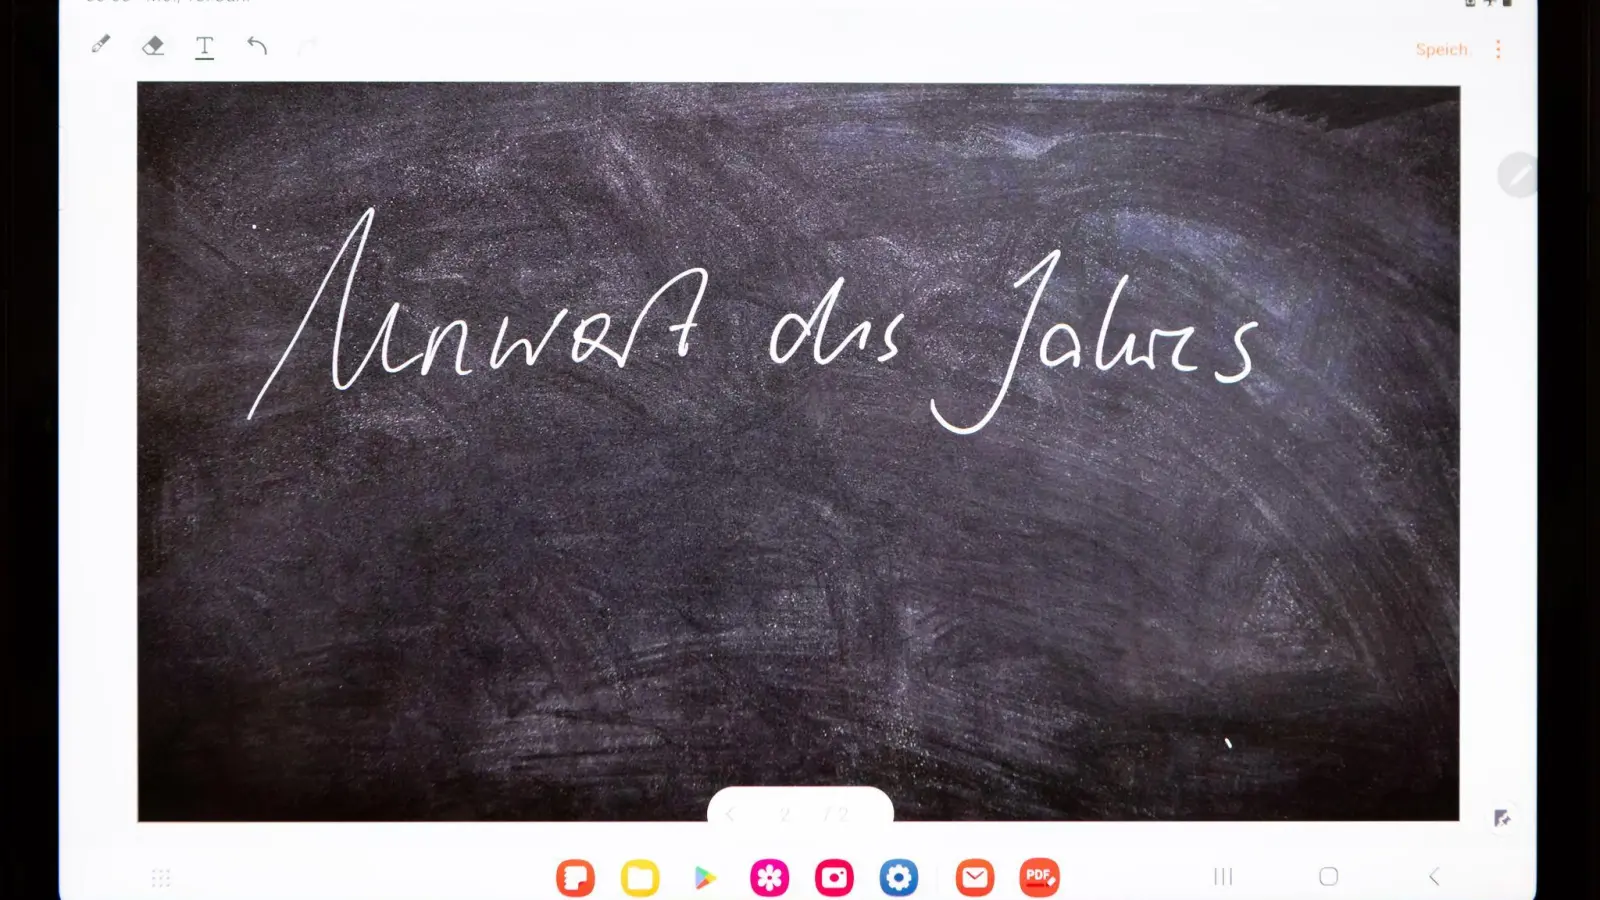 Speich
Unwort des Jahres
2 / 2
PDF